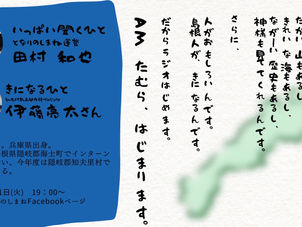 たかい 山もあるし
きれい な海もあるし
ながーい 歴史もあるし、
神様も見てくれるんです。
さらに、
人がおもしろいんです。
島根人が、きになるんです。
だからラジオはじめます。
AM たむら、はじまります。
いっぱい聞くひと
となりのしまね運営
田村 和也
きになるひと
伊藤 亮太さん
、兵庫県出身。
根県隠岐郡海士町でインターン
い、今年度は隠岐郡知夫里村で
る。
1日(火) 19:00〜
のしまねFacebookページ